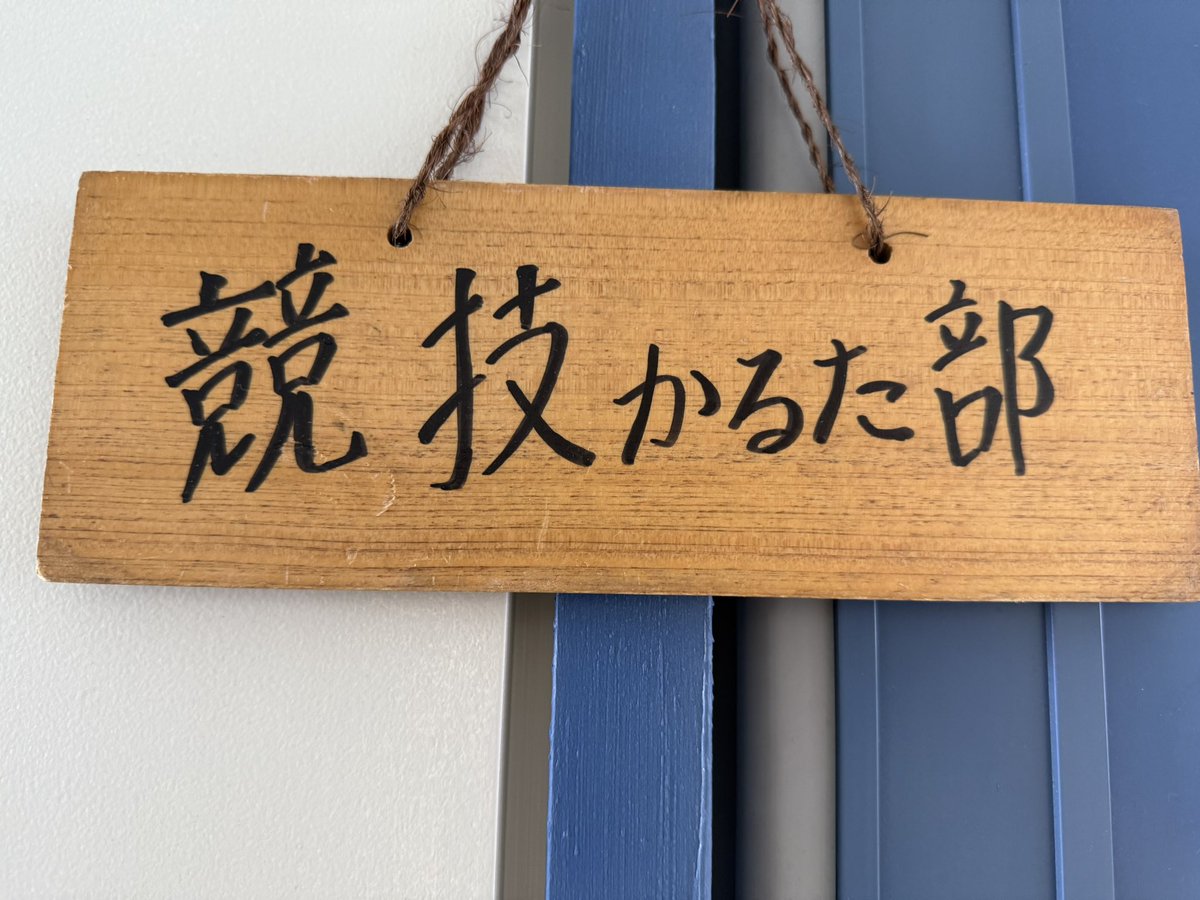 競技かるた部